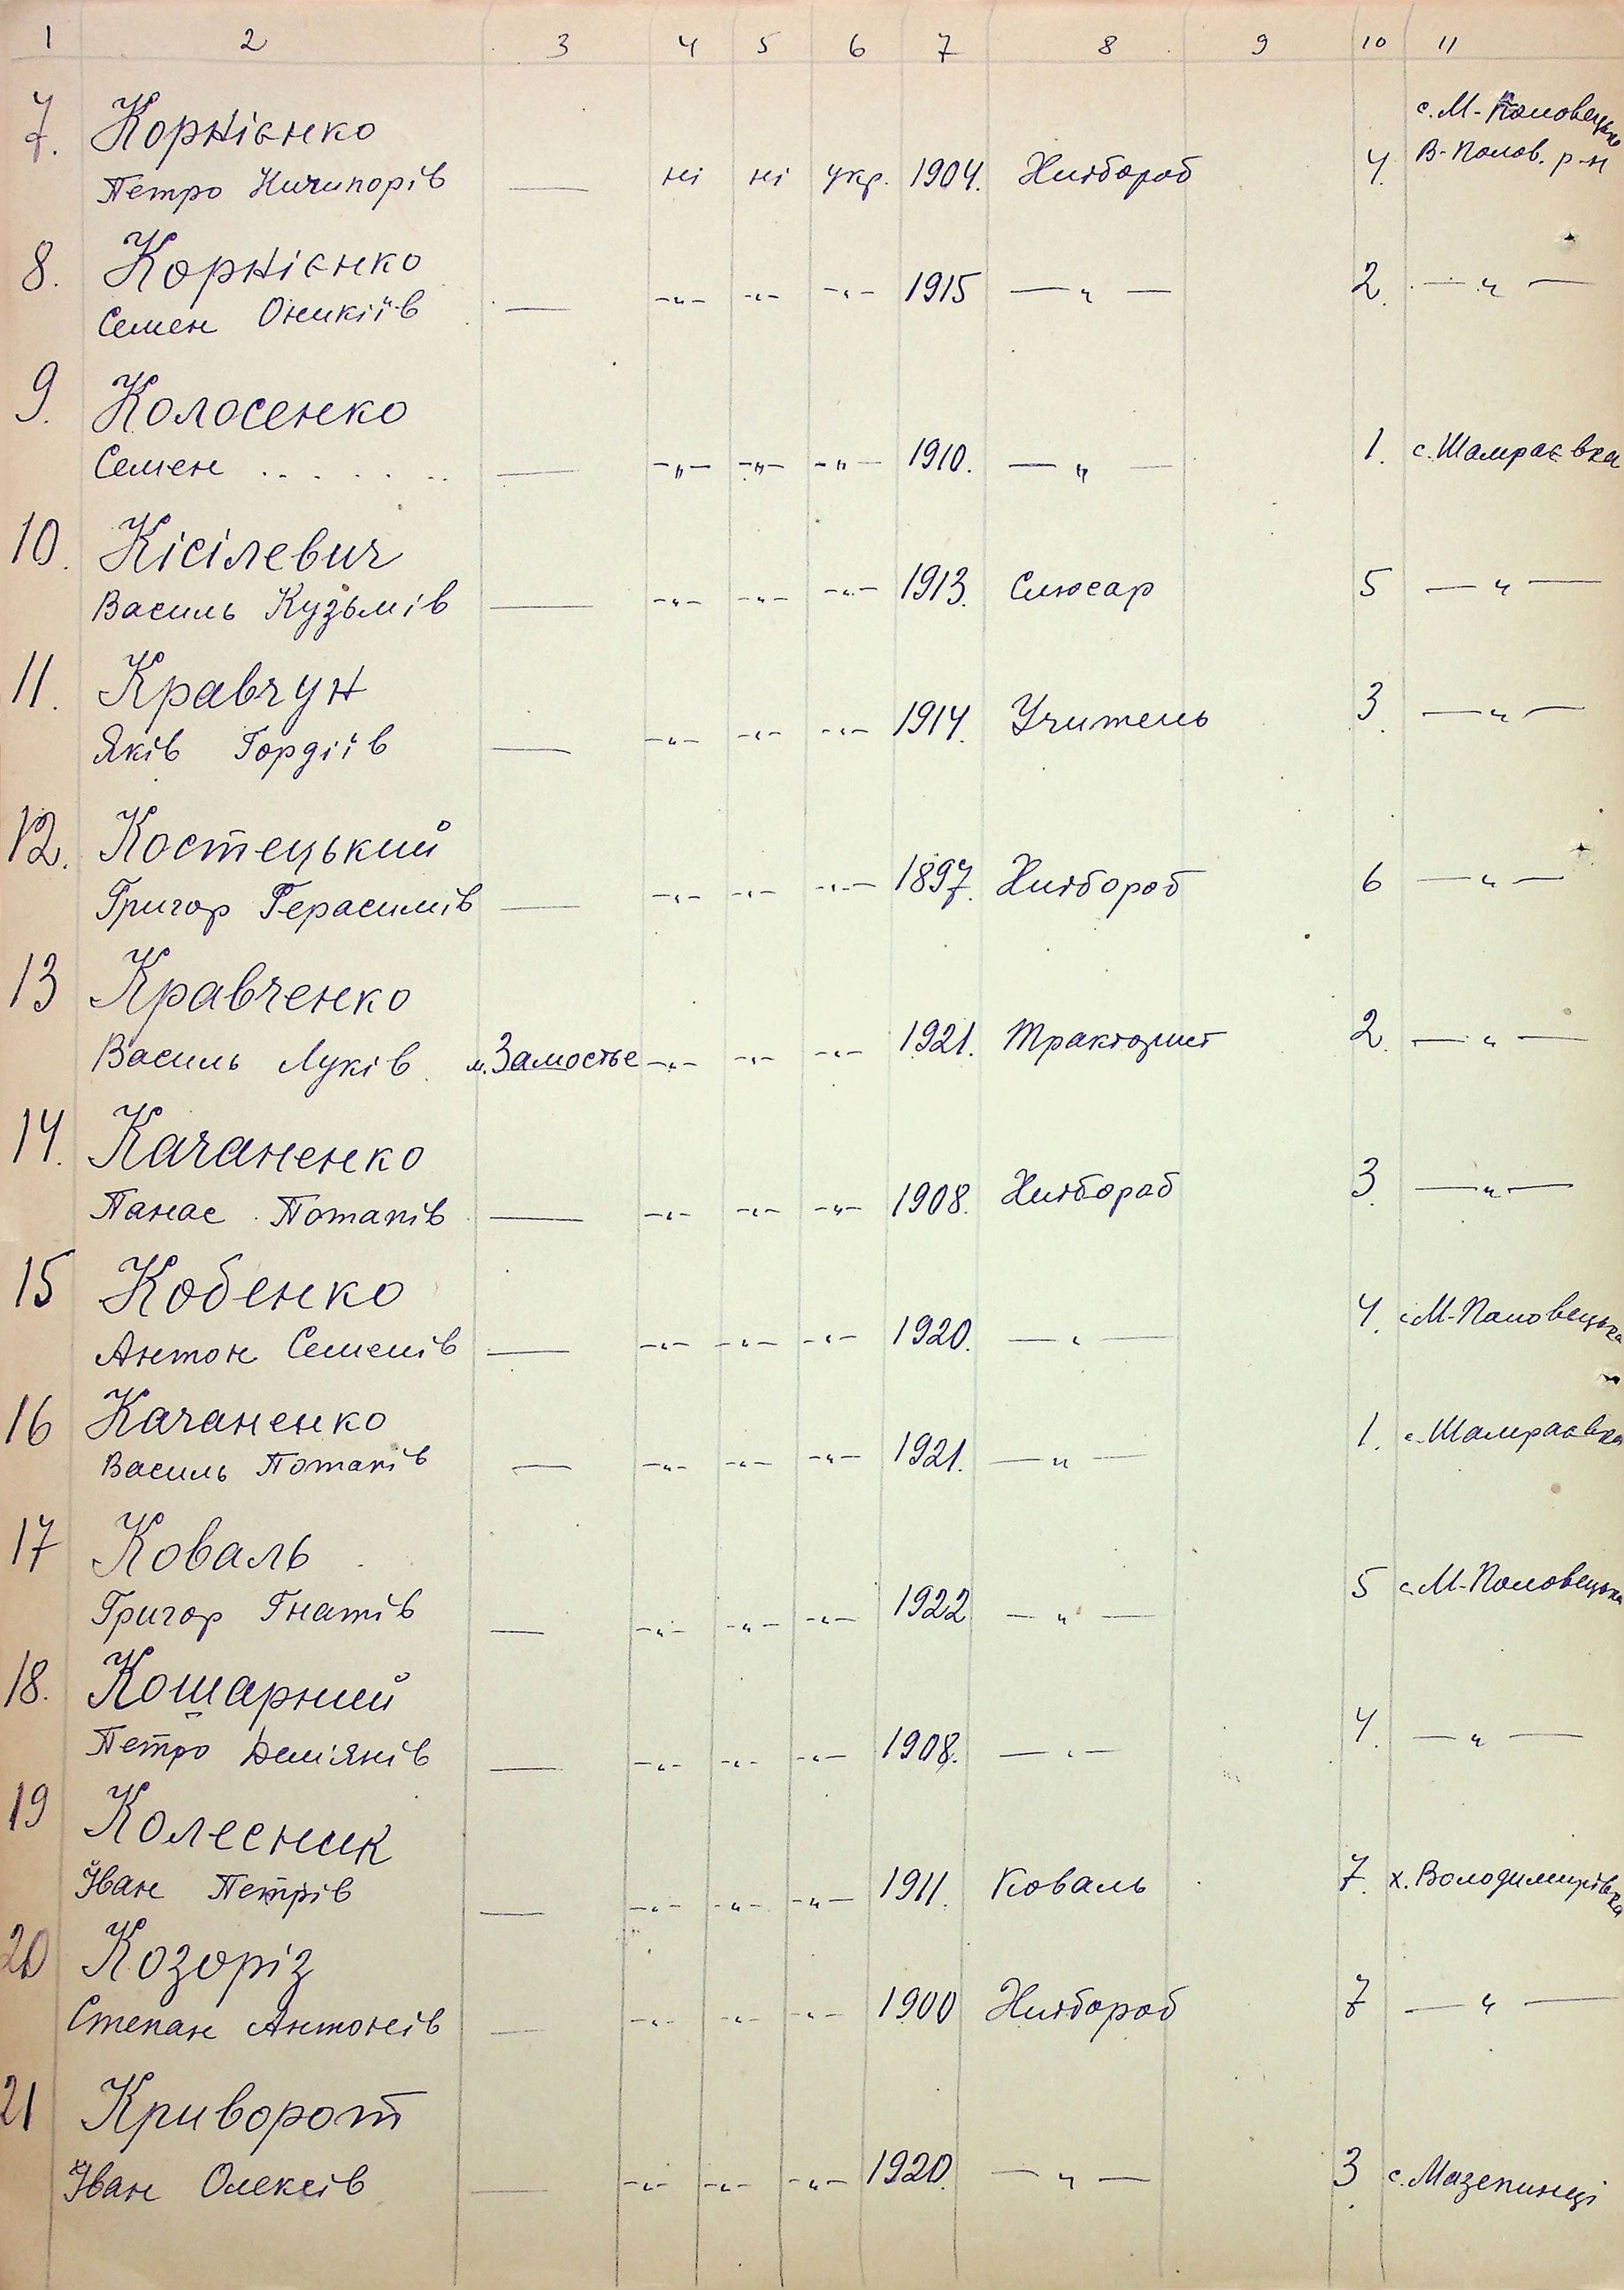 1 2 3 4 5 6 7 8 9 10 11
7. Корнієнко с. М-Половецьке
Петро Ничипорів — ні ні укр. 1904. Хлібороб 4. В-Полов. р-н
8. Корнієнко
Семен Оникіїв — -"- -"- -"- 1915 — " — 2. — " —
9. Колосенко
Семен . . . . . . — -"- -"- -"- 1910. — " — 1. с. Шамраєвка
10. Кісілевич
Василь Кузьмів — -"- -"- -"- 1913. Слюсар 5 — " —
11. Кравчун
Яків Гордіїв — -"- -"- -"- 1914. Учитель 3. — " —
12. Костецький
Григор Герасимів — -"- -"- -"- 1897. Хлібороб 6 — " —
13 Кравченко
Василь Луків. м. Замостье -"- -"- -"- 1921. Тракторист 2. — " —
14. Качаненко
Панас Потапів — -"- -"- -"- 1908. Хлібороб 3. — " —
15 Кобенко
Антон Семенів — -"- -"- -"- 1920. — " — 4. с. М-Половецька
16 Качаненко
Василь Потапів — -"- -"- -"- 1921. — " — 1. с. Шамраєвка
17 Коваль
Григор Гнатів — -"- -"- -"- 1922 — " — 5 с. М-Половецька
18. Кошарний
Петро Демʼянів — -"- -"- -"- 1908. — " — 4. — " —
19 Колесник
Іван Петрів — -"- -"- -"- 1911. Коваль 7. х. Володимирівка
20 Козоріз
Степан Антонів — -"- -"- -"- 1900 Хлібороб 7 — " —
21 Криворот
Іван Олексів — -"- -"- -"- 1920. — " — 3. с. Мазепинці